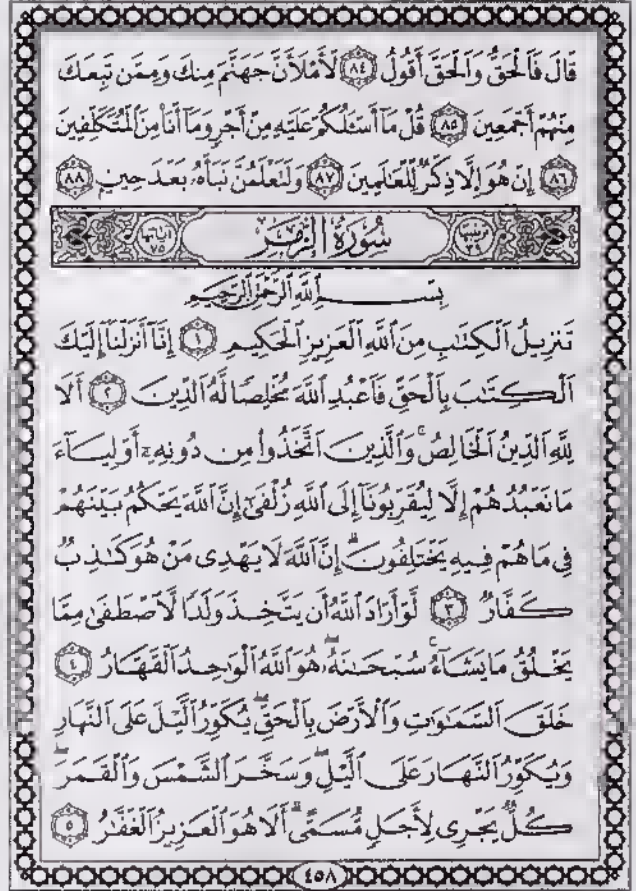 قَالَ فَٱلْحَقُّ وَٱلْحَقَّ أَقُولُ ٨٤ لَأَمْلَأَنَّ جَهَنَّمَ مِنكَ وَمِمَّن تَبِعَكَ
مِنْهُمْ أَجْمَعِينَ ٨٥ قُلْ مَآ أَسْـَٔلُكُمْ عَلَيْهِ مِنْ أَجْرٍ وَمَآ أَنَا۠ مِنَ ٱلْمُتَكَلِّفِينَ
٨٦ إِنْ هُوَ إِلَّا ذِكْرٌ لِّلْعَـٰلَمِينَ ٨٧ وَلَتَعْلَمُنَّ نَبَأَهُۥ بَعْدَ حِينٍۭ ٨٨
ترتيبها ٣٩ سُورَةُ الزُّمَرِ آياتها ٧٥
بِسْمِ ٱللَّهِ ٱلرَّحْمَـٰنِ ٱلرَّحِيمِ
تَنزِيلُ ٱلْكِتَـٰبِ مِنَ ٱللَّهِ ٱلْعَزِيزِ ٱلْحَكِيمِ ١ إِنَّآ أَنزَلْنَآ إِلَيْكَ
ٱلْكِتَـٰبَ بِٱلْحَقِّ فَٱعْبُدِ ٱللَّهَ مُخْلِصًا لَّهُ ٱلدِّينَ ٢ أَلَا
لِلَّهِ ٱلدِّينُ ٱلْخَالِصُ ۚ وَٱلَّذِينَ ٱتَّخَذُوا۟ مِن دُونِهِۦٓ أَوْلِيَآءَ
مَا نَعْبُدُهُمْ إِلَّا لِيُقَرِّبُونَآ إِلَى ٱللَّهِ زُلْفَىٰٓ إِنَّ ٱللَّهَ يَحْكُمُ بَيْنَهُمْ
فِى مَا هُمْ فِيهِ يَخْتَلِفُونَ ۗ إِنَّ ٱللَّهَ لَا يَهْدِى مَنْ هُوَ كَـٰذِبٌ
كَفَّارٌ ٣ لَّوْ أَرَادَ ٱللَّهُ أَن يَتَّخِذَ وَلَدًا لَّٱصْطَفَىٰ مِمَّا
يَخْلُقُ مَا يَشَآءُ ۚ سُبْحَـٰنَهُۥ ۖ هُوَ ٱللَّهُ ٱلْوَٰحِدُ ٱلْقَهَّارُ ٤
خَلَقَ ٱلسَّمَـٰوَٰتِ وَٱلْأَرْضَ بِٱلْحَقِّ ۖ يُكَوِّرُ ٱلَّيْلَ عَلَى ٱلنَّهَارِ
وَيُكَوِّرُ ٱلنَّهَارَ عَلَى ٱلَّيْلِ ۖ وَسَخَّرَ ٱلشَّمْسَ وَٱلْقَمَرَ ۖ
كُلٌّ يَجْرِى لِأَجَلٍ مُّسَمًّى ۗ أَلَا هُوَ ٱلْعَزِيزُ ٱلْغَفَّـٰرُ ٥
٤٥٨